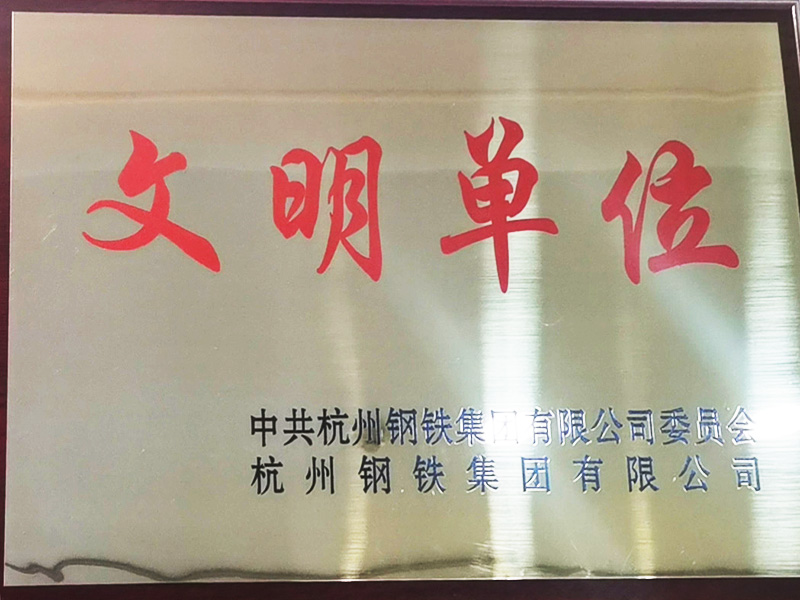 文明单位
中共杭州钢铁集团有限公司委员会
杭州钢铁集团有限公司